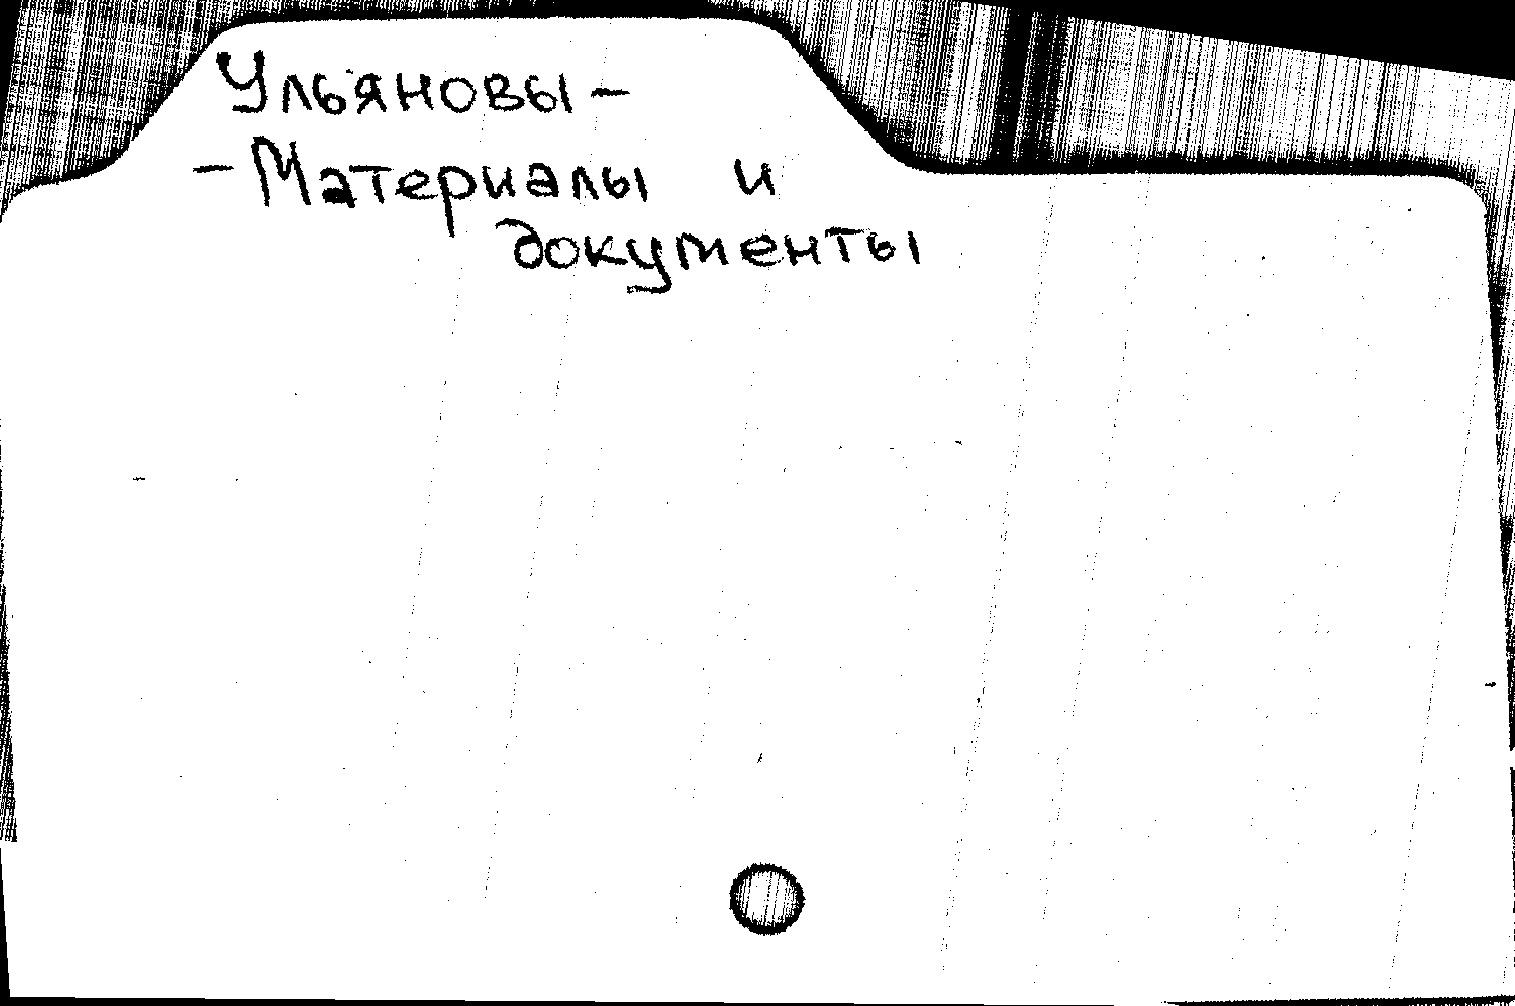 Ульяновы –
– Материалы и
документы